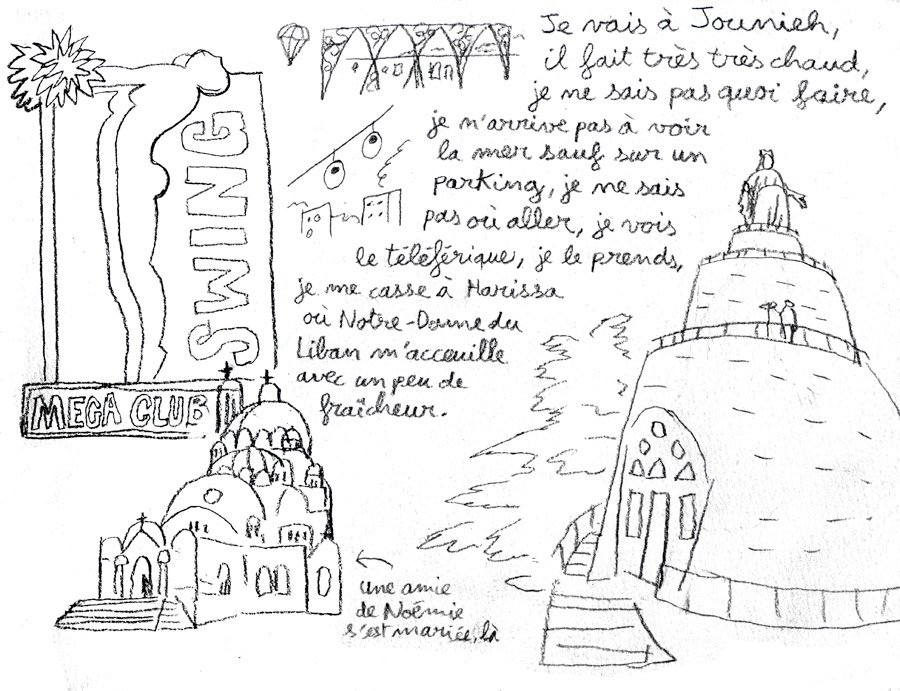 Je vais à Jounieh,
il fait très très chaud,
je ne sais pas quoi faire,
je n'arrive pas à voir
la mer sauf sur un
parking, je ne sais
pas où aller, je vois
le téléférique, je le prends,
je me casse à Harissa
où Notre-Dame du
Liban m'acceuille
avec un peu de
fraîcheur.
SWING
MEGA CLUB
une amie
de Noëmie
s'est mariée, là